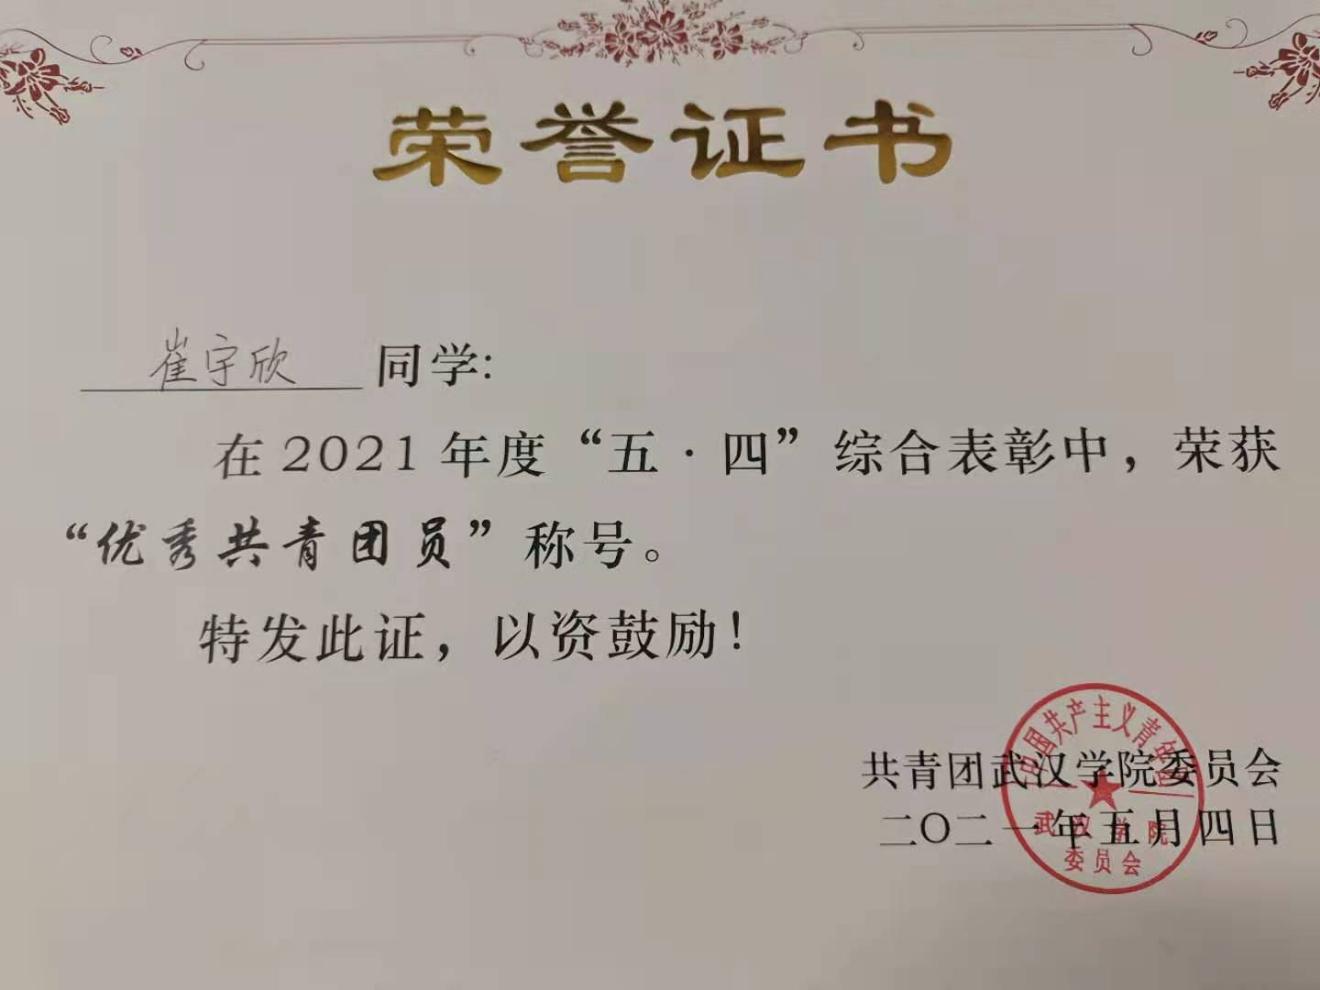 荣誉证书
崔宇欣 同学:
在2021年度“五·四”综合表彰中，荣获
“优秀共青团员”称号。
特发此证，以资鼓励！
共青团武汉学院委员会
二〇二一年五月四日
中国共产主义青年团
武汉学院
委员会